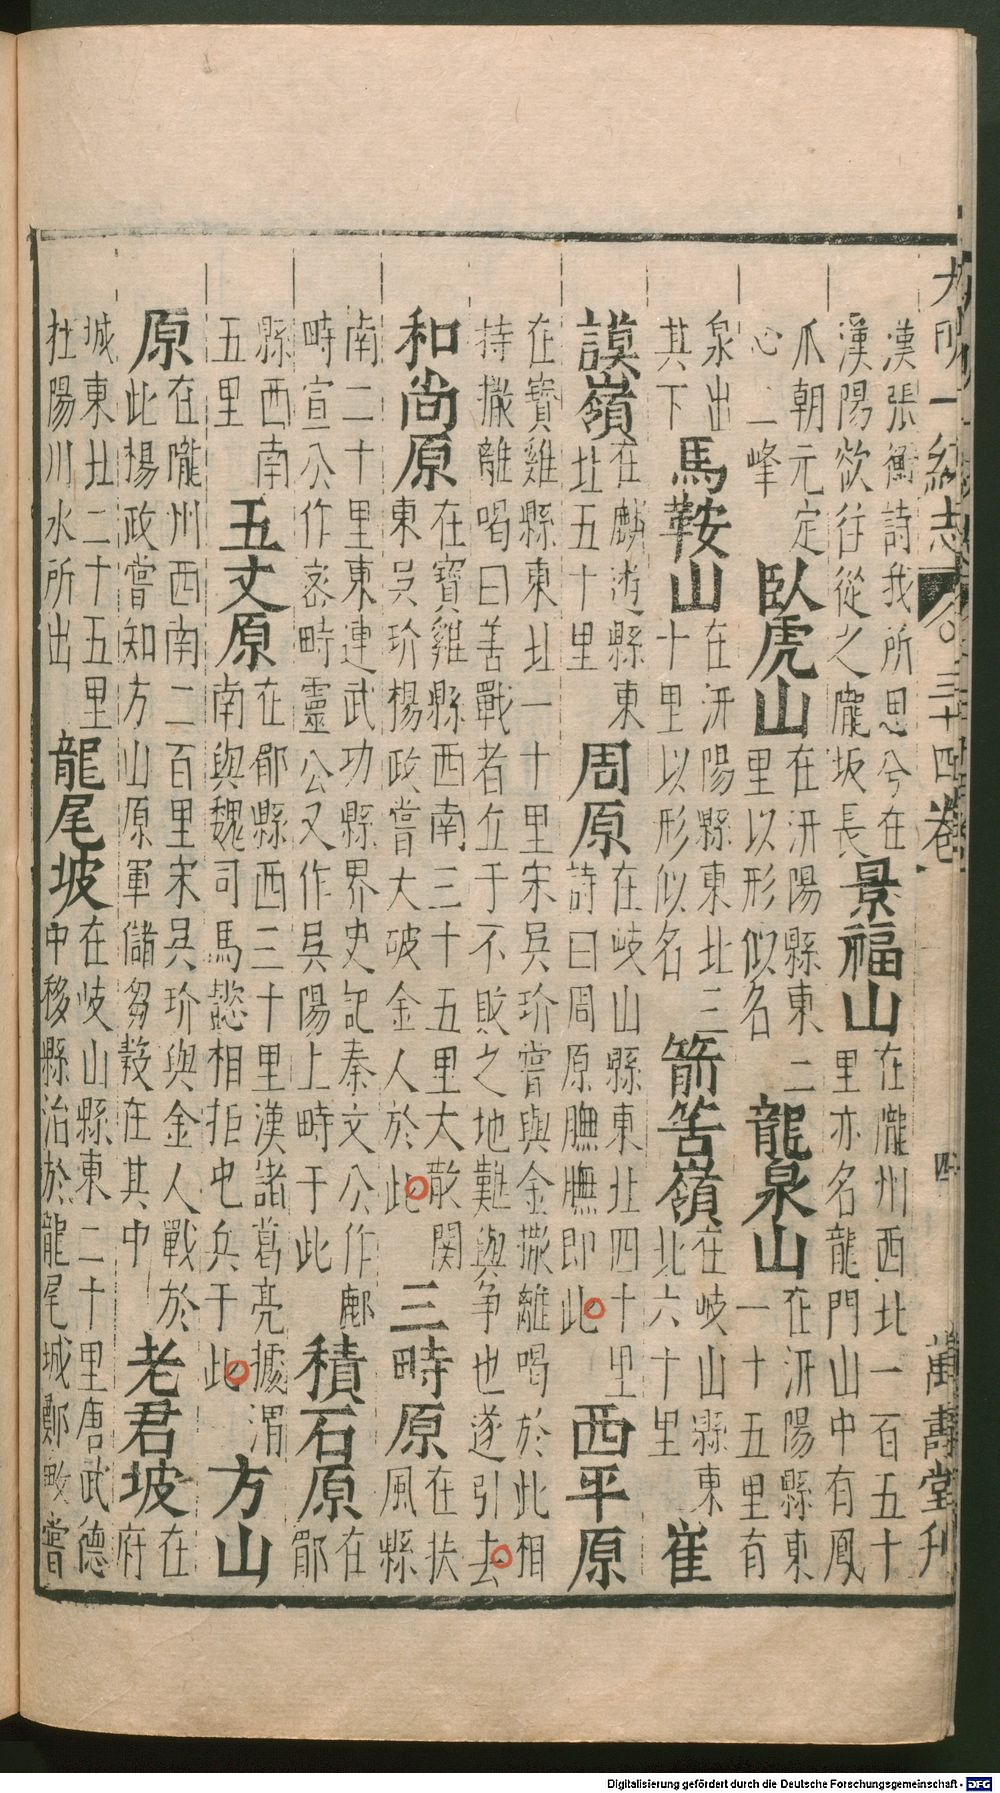 大明一統志 卷三十四 四 萬壽堂刋
漢張衡詩我所思兮在
漢陽欲往從之隴坂長
景福山
在隴州西北一百五十
里亦名龍門山中有鳳
爪朝元定
心二峰
臥虎山
在汧陽縣東二
里以形似名
龍泉山
在汧陽縣東
一十五里有
泉出
其下
馬鞍山
在汧陽縣東北三
十里以形似名
箭筈嶺
在岐山縣東
北六十里
崔
謨嶺
在麟遊縣東
北五十里
周原
在岐山縣東北四十里
詩曰周原膴膴即此
西平原
在寶雞縣東北一十里宋吳玠嘗與金撒離喝於此相
持撒離喝曰善戰者立于不敗之地難與争也遂引去
和尚原
在寶雞縣西南三十五里大散関
東吳玠楊政嘗大破金人於此
三畤原
在扶
風縣
南二十里東連武功縣界史記秦文公作鄜
畤宣公作宻畤靈公又作吳陽上畤于此
積石原
在
郿
縣西南
五里
五丈原
在郿縣西三十里漢諸葛亮據渭
南與魏司馬懿相拒屯兵于此
方山
原
在隴州西南二百里宋吳玠與金人戰於
此楊政嘗知方山原軍儲芻穀在其中
老君坡
在
府
城東北二十五里
杜陽川水所出
龍尾坡
在岐山縣東二十里唐武德
中移縣治於龍尾城鄭畋嘗
Digitalisierung gefördert durch die Deutsche Forschungsgemeinschaft - DFG